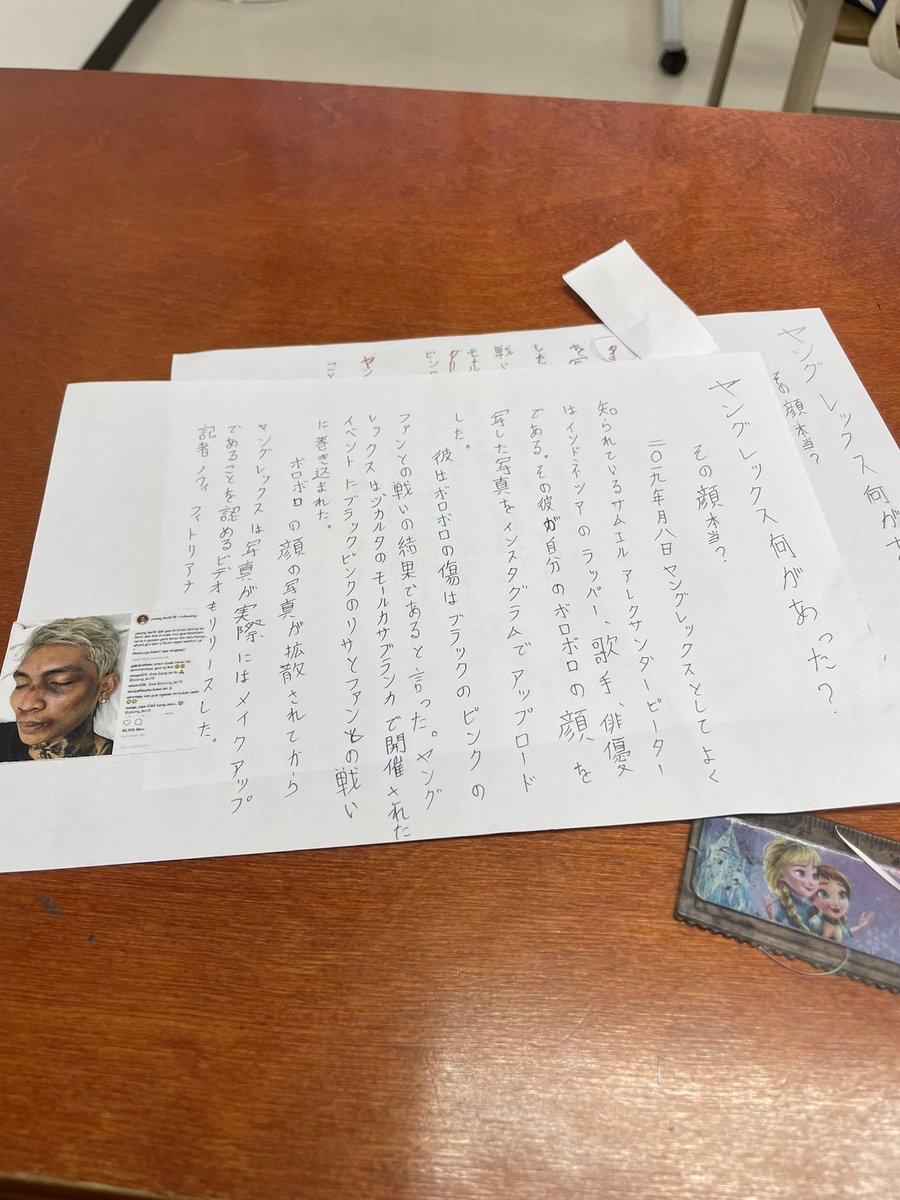 ヤングレックス何が
その顔本当?
ヤングレックス何があった?
その顔本当?
二〇一九年月八日ヤングレックスとしてよく
知られているサムエル アレクサンダーピーター
はインドネシアのラッパー、歌手、俳優
である。その彼が自分のボロボロの顔を
写した写真をインスタグラムでアップロード
した。
彼はボロボロの傷はブラックのピンクの
ファンとの戦いの結果であると言った。ヤング
レックスはジカルタのモールカサブランカで開催された
イベントにブラックピンクのリサとファンとの戦い
に巻き込まれた。
ボロボロの顔の写真が拡散されてから
ヤングレックスは写真が実際にはメイクアップ
であることを認めるビデオもリリースした。
記者ノフィ フィトリアナ
young_lex18 Following
likes